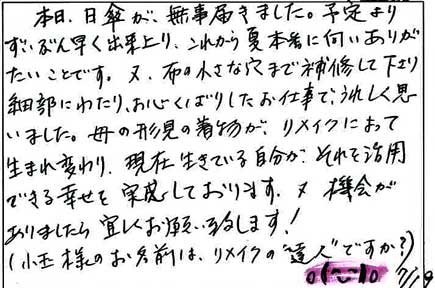 本日、日傘が、無事届きました。予定より
ずいぶん早く出来上り、これから夏本番に向いありが
たいことです。又、布の小さな穴まで補修して下さり
細部にわたり、お心くばりしたお仕事で、うれしく思
いました。母の形見の着物が、リメイクによって
生まれ変わり、現在生きている自分が、それを活用
できる幸せを実感しております。又 機会が
ありましたら宜しくお願い致します!
(小玉様のお名前は、リメイクの"達人"ですか?)
o(⌣)o 7/19